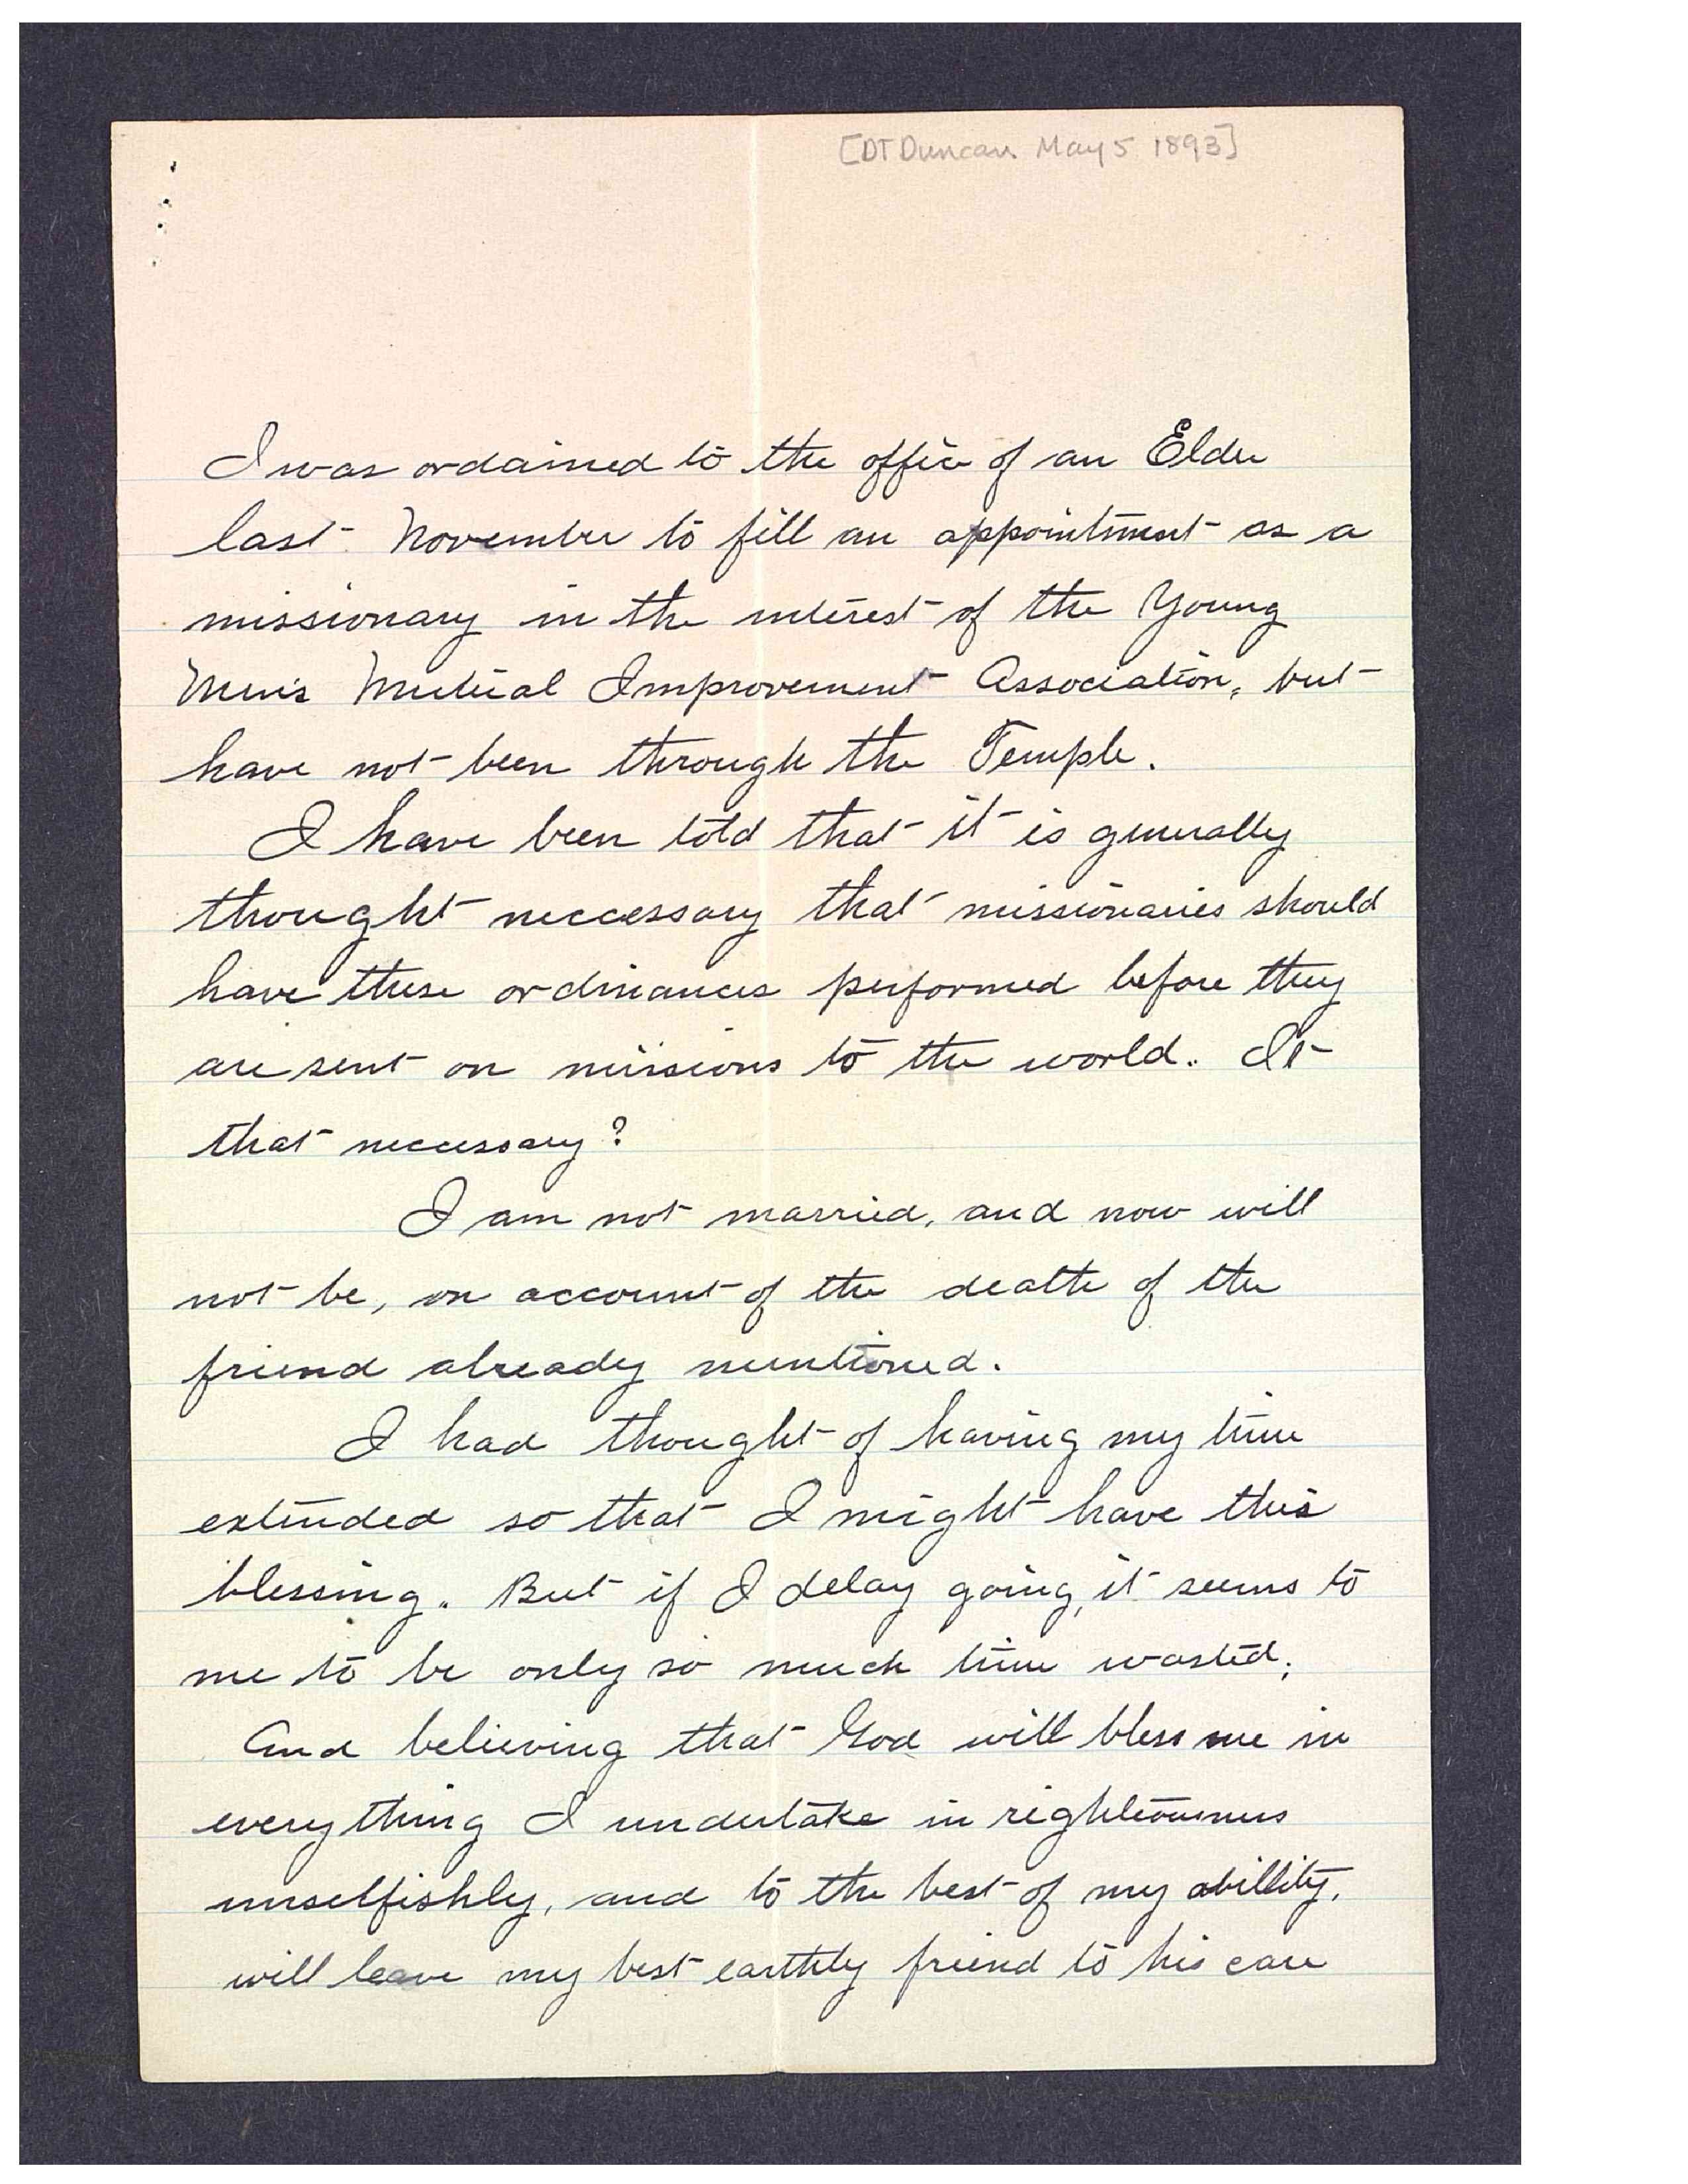 [DT Duncan May 5 1893]
I was ordained to the office of an Elder
last November to fill an appointment as a
missionary in the interest of the Young
Men's Mutual Improvement Association, but
have not been through the Temple.
I have been told that it is generally
thought neccessary that missionaries should
have these ordinances performed before they
are sent on missions to the world. It
that neccessary?
I am not married, and now will
not be, on account of the death of the
friend already mentioned.
I had thought of having my time
extended so that I might have this
blessing. But if I delay going, it seems to
me to be only so much time wasted;
And believing that God will bless me in
everything I undertake in righteousness
unselfishly, and to the best of my abillity,
will leave my best earthly friend to his care